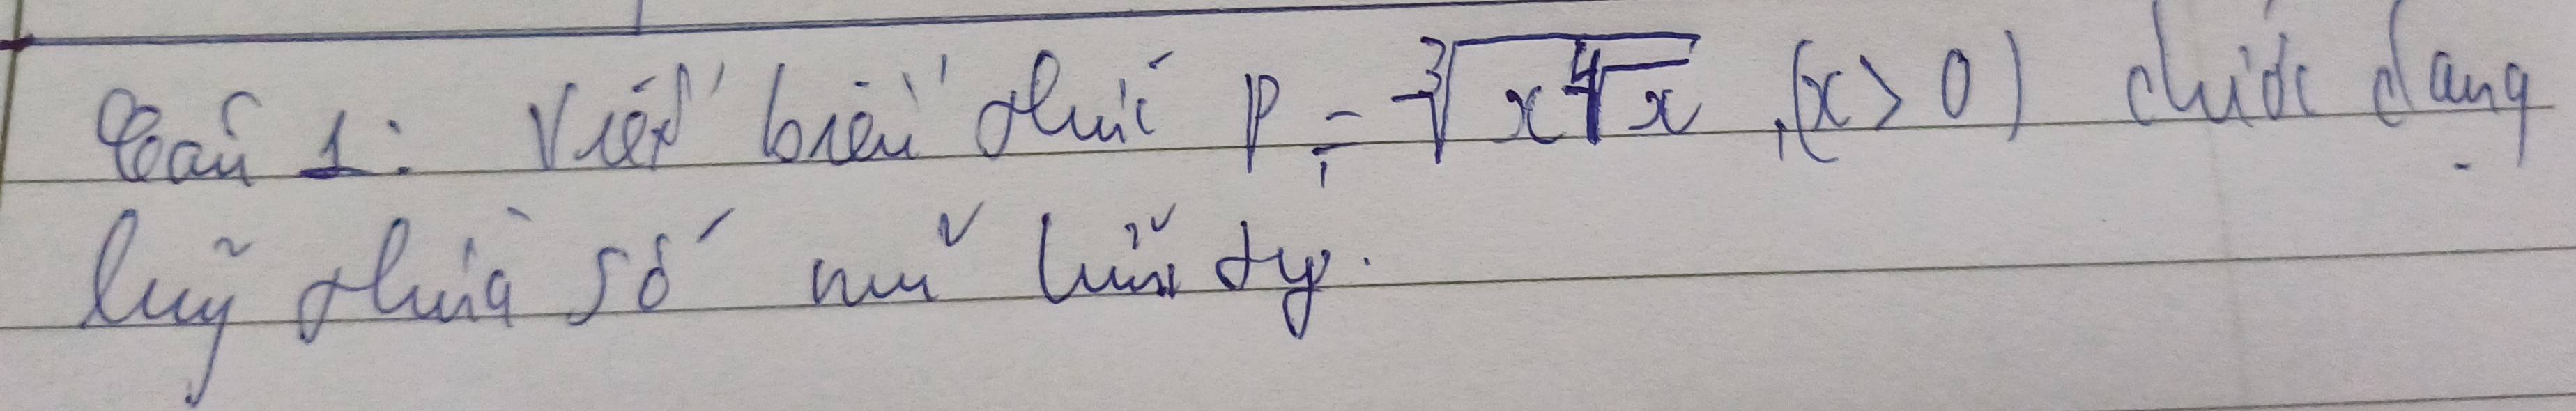 Câu 1: Viết biểu thức P = ∛(x∜x), (x > 0) dưới dạng
luỹ thừa số mũ hữu tỷ.